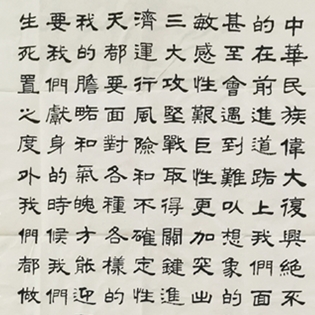 中華民族偉大復興絕不
的在前進道路上我們面
甚至會遇到難以想象的
敏感性艱巨性更加突出
三大攻堅戰取得關鍵進
濟運行風險和不確定性
天都要面對各種各樣的
我的膽略和氣魄才能迎
要我們獻身的時候我們
生死置之度外我們都做